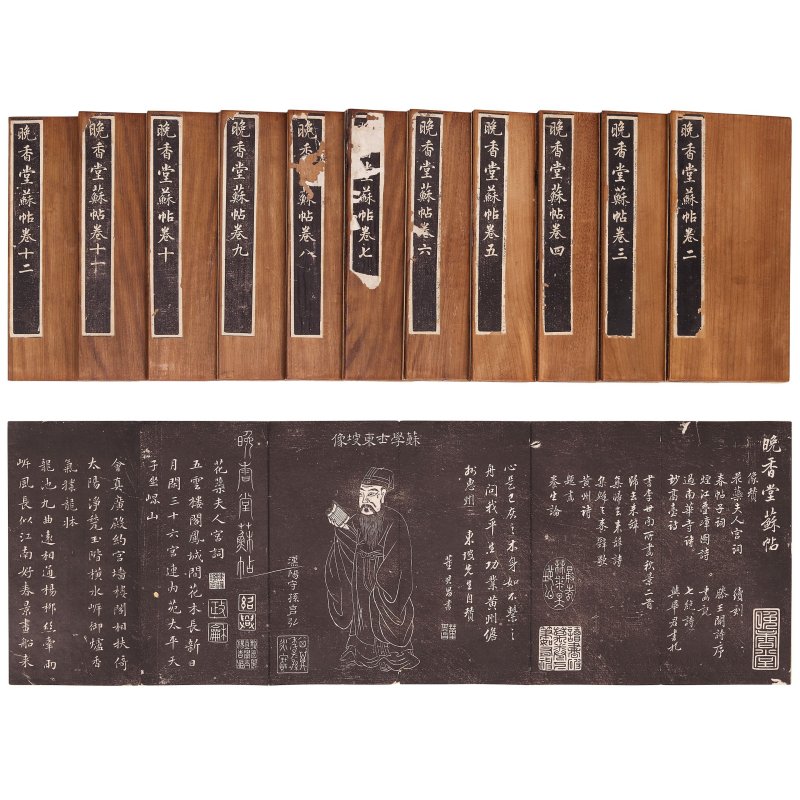 晚香堂蘇帖卷二
晚香堂蘇帖卷三
晚香堂蘇帖卷四
晚香堂蘇帖卷五
晚香堂蘇帖卷六
蘇帖卷七
晚蘇帖卷八
晚香堂蘇帖卷九
晚香堂蘇帖卷十
晚香堂蘇帖卷十一
晚香堂蘇帖卷十二
晚香堂蘇帖
像贊
花蕊夫人宮詞
春帖子詞
煙江疊嶂圖詩
過南華寺詩
妙高臺詩
續刻
滕王閣詩序
七絕詩
與華君書札
晚香堂
書李世南所畫秋景二首
歸去來辭
集歸去來辭詩
黃州詩
題畫
養生論
心是已灰之木身如不繫之
舟問我平生功業黃州儋
州惠州 東坡先生自贊
董其昌書
蘇學士東坡像
晚香堂蘇帖
花蕊夫人宮詞
五雲樓閣鳳城間花木長新日
月閒三十六宮連內苑太平天
子坐崐山
會真廣殿約宮牆樓閣相扶倚
太陽淨甃玉階橫水岸御爐香
氣撲龍牀
龍池九曲遠相通楊柳絲牽兩
岸風長似江南好春景畫船來